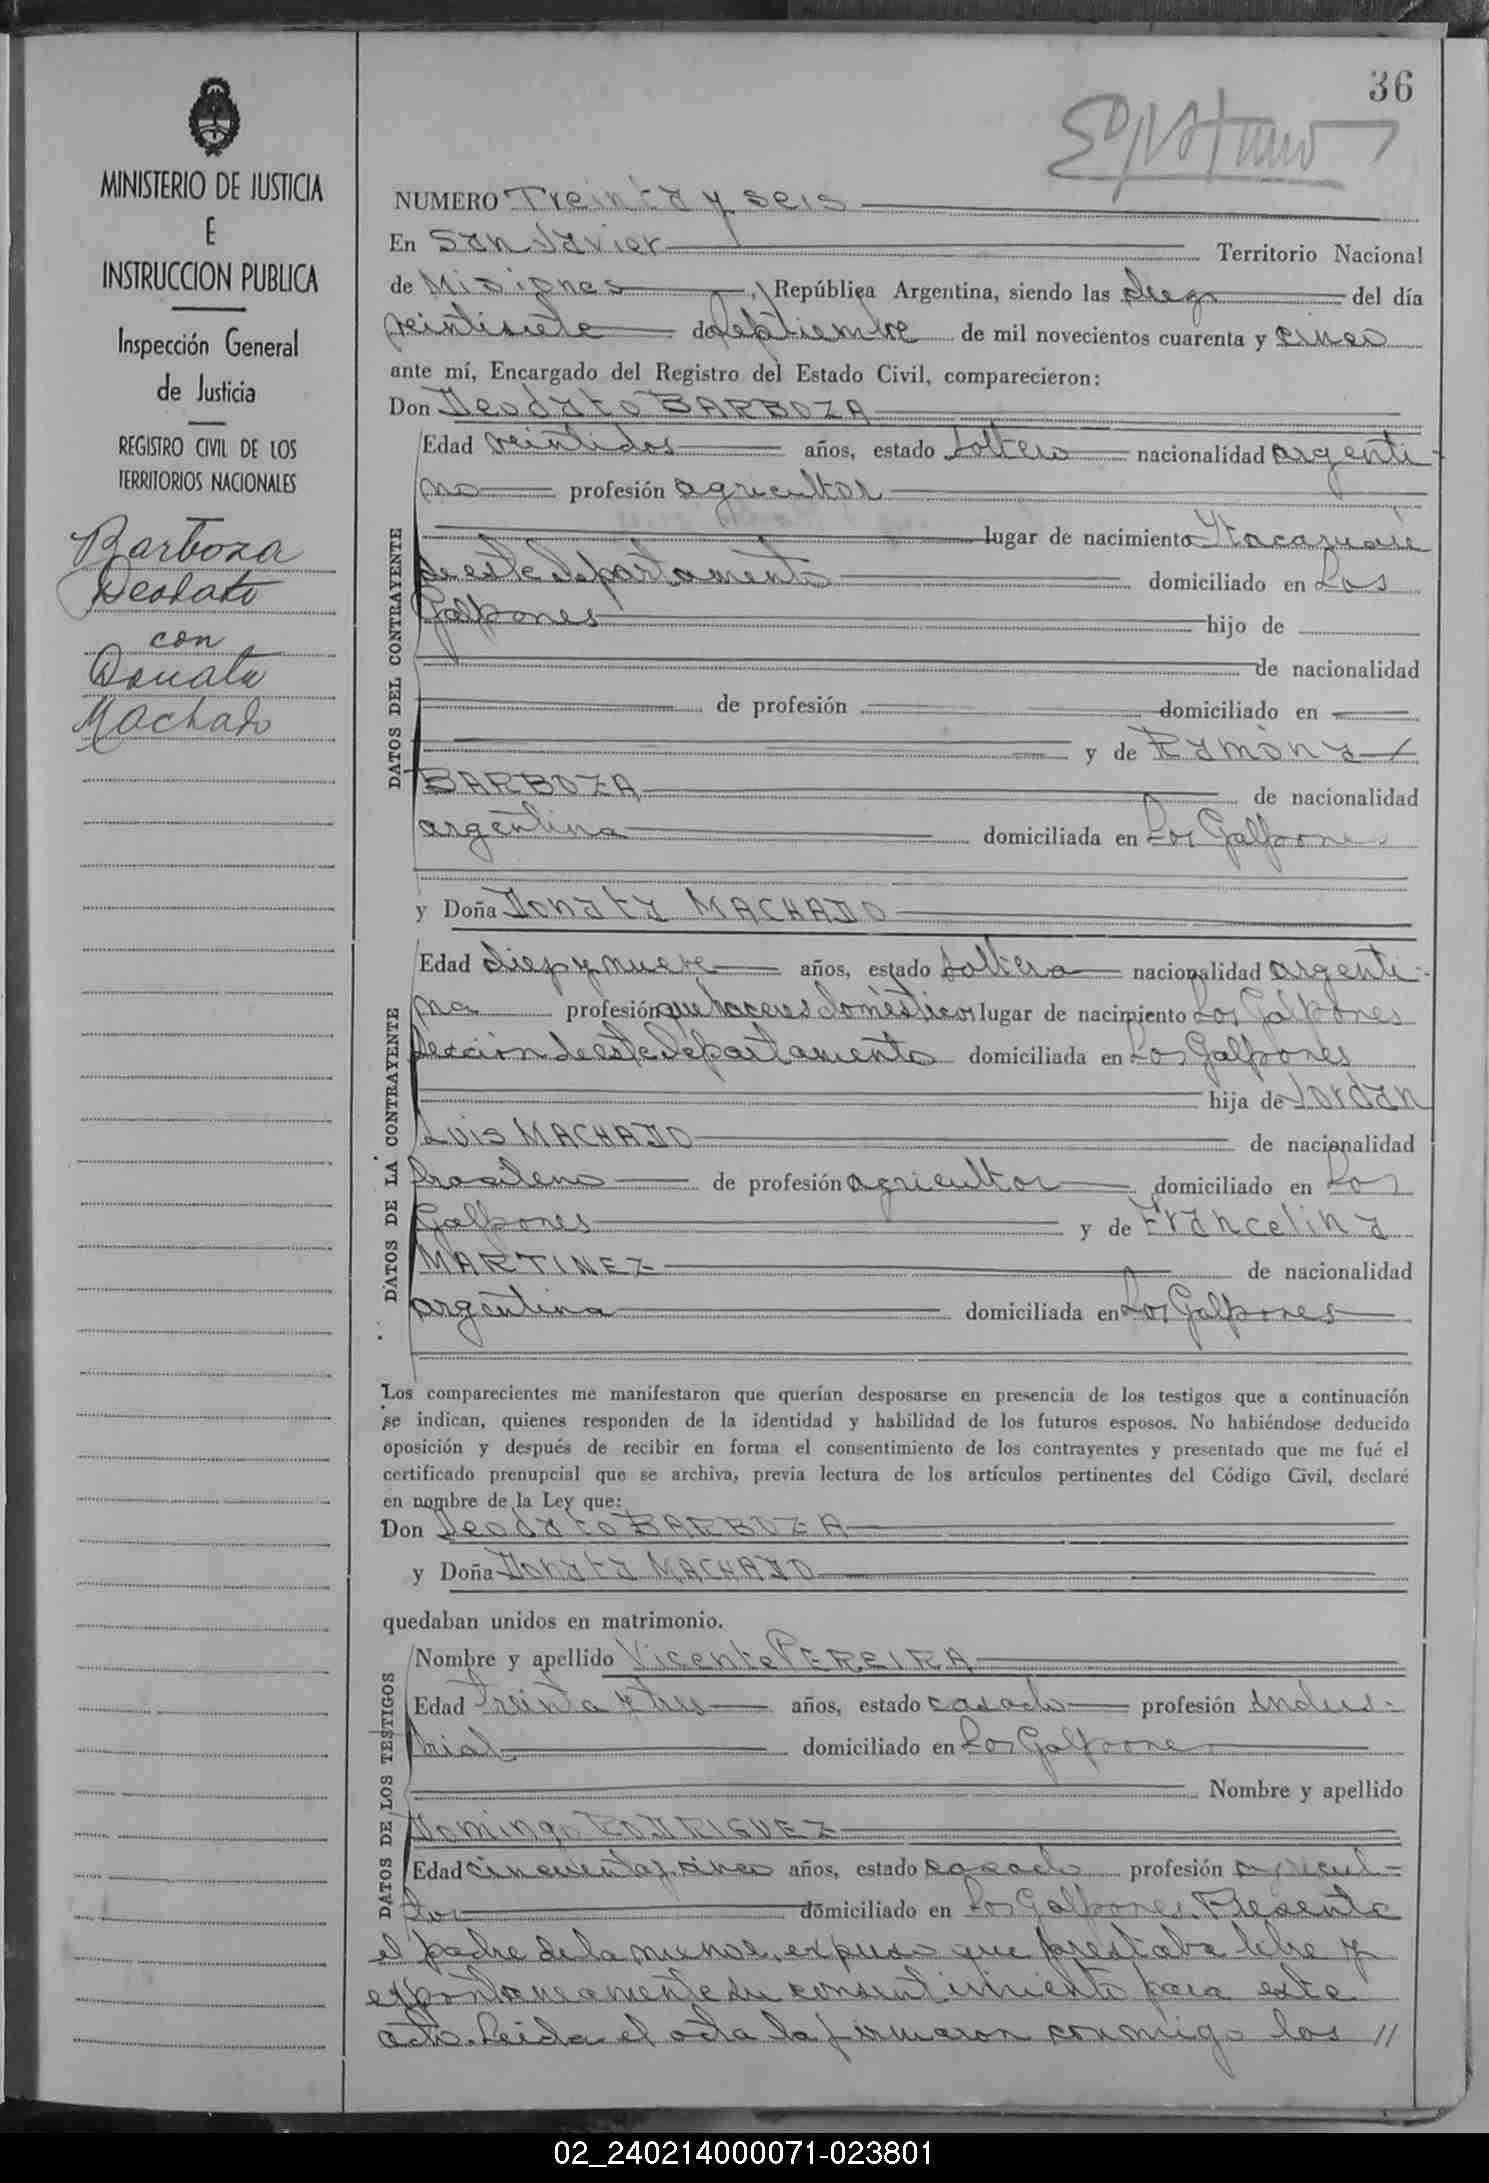 36
MINISTERIO DE JUSTICIA
E
INSTRUCCION PUBLICA
Inspección General
de Justicia
REGISTRO CIVIL DE LOS
TERRITORIOS NACIONALES
Barboza
Deodato
con
Donata
Machado
NUMERO Treinta y seis
En San Javier Territorio Nacional
de Misiones, República Argentina, siendo las diez del día
veintisiete de septiembre de mil novecientos cuarenta y cinco
ante mí, Encargado del Registro del Estado Civil, comparecieron:
Don Deodato BARBOZA
DATOS DEL CONTRAYENTE
Edad veintidos años, estado soltero nacionalidad argenti-
no profesión agricultor
lugar de nacimiento Itacaruaré
de este departamento domiciliado en Los
Galpones hijo de
de nacionalidad
de profesión domiciliado en
y de Ramona
BARBOZA de nacionalidad
argentina domiciliada en Los Galpones
y Doña Donata MACHADO
DATOS DE LA CONTRAYENTE
Edad diez y nueve años, estado soltera nacionalidad argenti-
na profesión quehaceres domésticos lugar de nacimiento Los Galpones
sección de este departamento domiciliada en Los Galpones
hija de Jordan
Luis MACHADO de nacionalidad
brasileno de profesión agricultor domiciliado en Los
Galpones y de Francelina
MARTINEZ de nacionalidad
argentina domiciliada en Los Galpones
Los comparecientes me manifestaron que querían desposarse en presencia de los testigos que a continuación
se indican, quienes responden de la identidad y habilidad de los futuros esposos. No habiéndose deducido
oposición y después de recibir en forma el consentimiento de los contrayentes y presentado que me fué el
certificado prenupcial que se archiva, previa lectura de los artículos pertinentes del Código Civil, declaré
en nombre de la Ley que:
Don Deodato BARBOZA
y Doña Donata MACHADO
quedaban unidos en matrimonio.
DATOS DE LOS TESTIGOS
Nombre y apellido Vicente PEREIRA
Edad treinta y tres años, estado casado profesión indus-
trial domiciliado en Los Galpones
Nombre y apellido
Domingo RODRIGUEZ
Edad cincuenta y cinco años, estado casado profesión agricul-
tor domiciliado en Los Galpones. Presente
el padre de la menor, expuso que prestaba libre y
espontaneamente su consentimiento para este
acto. Leida el acta la firmaron conmigo los //
02_240214000071-023801